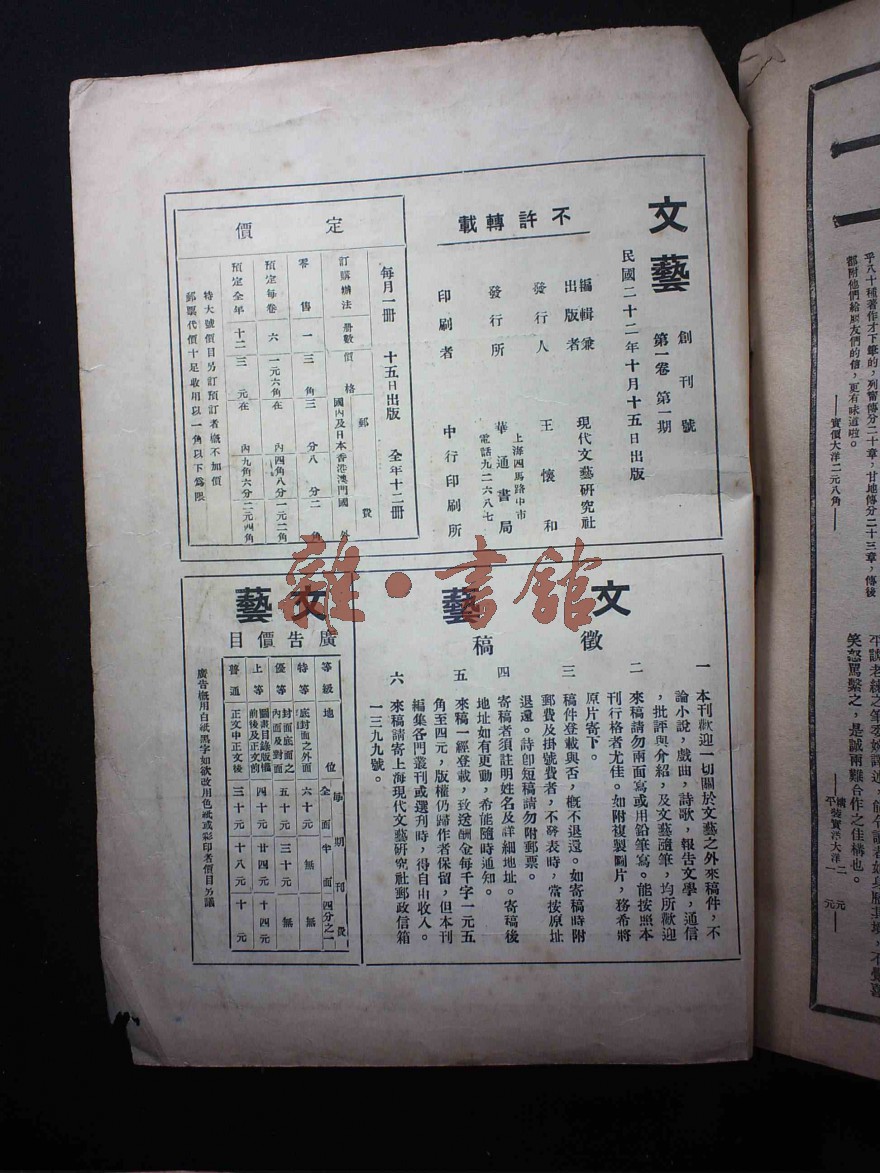 文藝
創刊號
第一卷 第一期
民國二十二年十月十五日出版
不許轉載
編輯兼
出版者 現代文藝研究社
發行人 王懷和
發行所 華通書局
上海四馬路中市
電話九二六八七
印刷者 中行印刷所
定價
每月一冊 十五日出版 全年十二冊
訂購辦法 冊數 價格 郵費
國內及日本 香港澳門 國外
零售 一 三角 三分 八分 二角
預定每卷 六 一元六角 在內 四角八分 一元二角
預定全年 十二 三元 在內 九角六分 二元四角
特大號價目另訂預訂者概不加價
郵票代價十足收用以一角以下為限
文藝
徵稿
一 本刊歡迎一切關於文藝之外來稿件，不
論小說，戲曲，詩歌，報告文學，通信
，批評與介紹，及文藝隨筆，均所歡迎
二 來稿請勿兩面寫或用鉛筆寫。能按照本
刊行格者尤佳。如附複製圖片，務希將
原片寄下。
三 稿件登載與否，概不退還。如寄稿時附
郵費及掛號費者，不發表時，當按原址
退還。詩即短稿請勿附郵票。
四 寄稿者須註明姓名及詳細地址。寄稿後
地址如有更動，希能隨時通知。
五 來稿一經登載，致送酬金每千字一元五
角至四元，版權仍歸作者保留，但本刊
編集各門叢刊或選刊時，得自由收入。
六 來稿請寄上海現代文藝研究社郵政信箱
一三九九號。
文藝
廣告價目
等級 地位 每期刊費
全面 半面 四分之一
特等 底封面之外面 六十元 無 無
優等 封面底面之內面及對面 五十元 三十元 無
上等 圖畫目錄版權前後及正文前 四十元 廿四元 十四元
普通 正文中正文後 三十元 十八元 十元
廣告概用白紙黑字如欲改用色紙或彩印者價目另議
雜·書館
乎八十種著作才下筆的，列甯傳分二十章，甘地傳分二十三章，傳後
都附他們給朋友們的信，更有味道啦。
——實價大洋二元八角——
笑怒罵繫之，是誠兩難合作之佳構也。